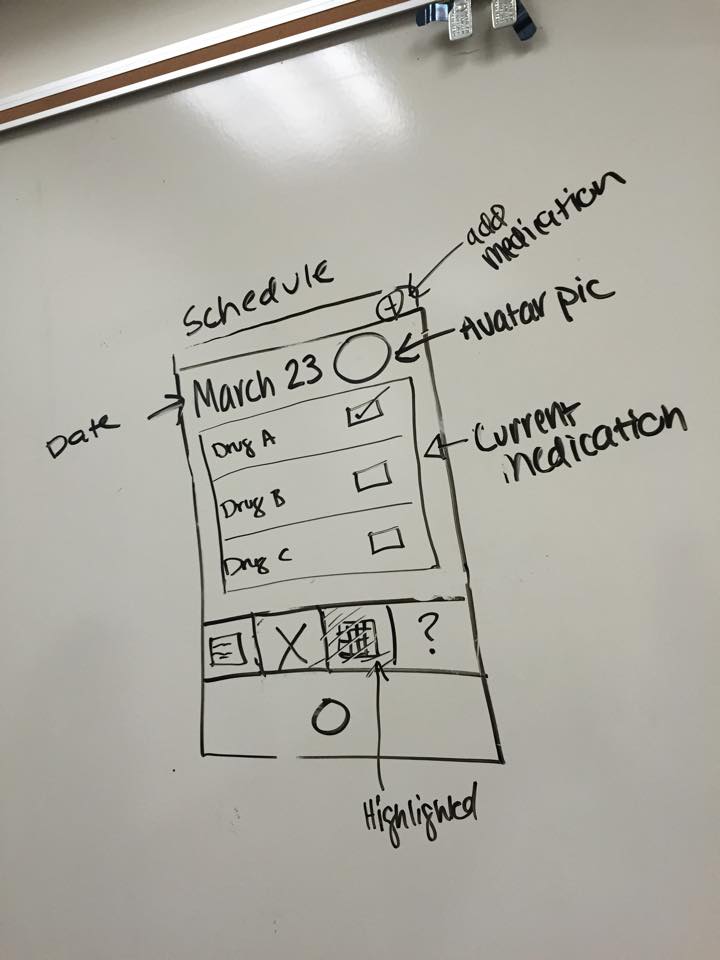 add
medication
Schedule
+
Avatar pic
March 23
Date
Current
medication
Drug A
Drug B
Drug C
X
?
Highlighted